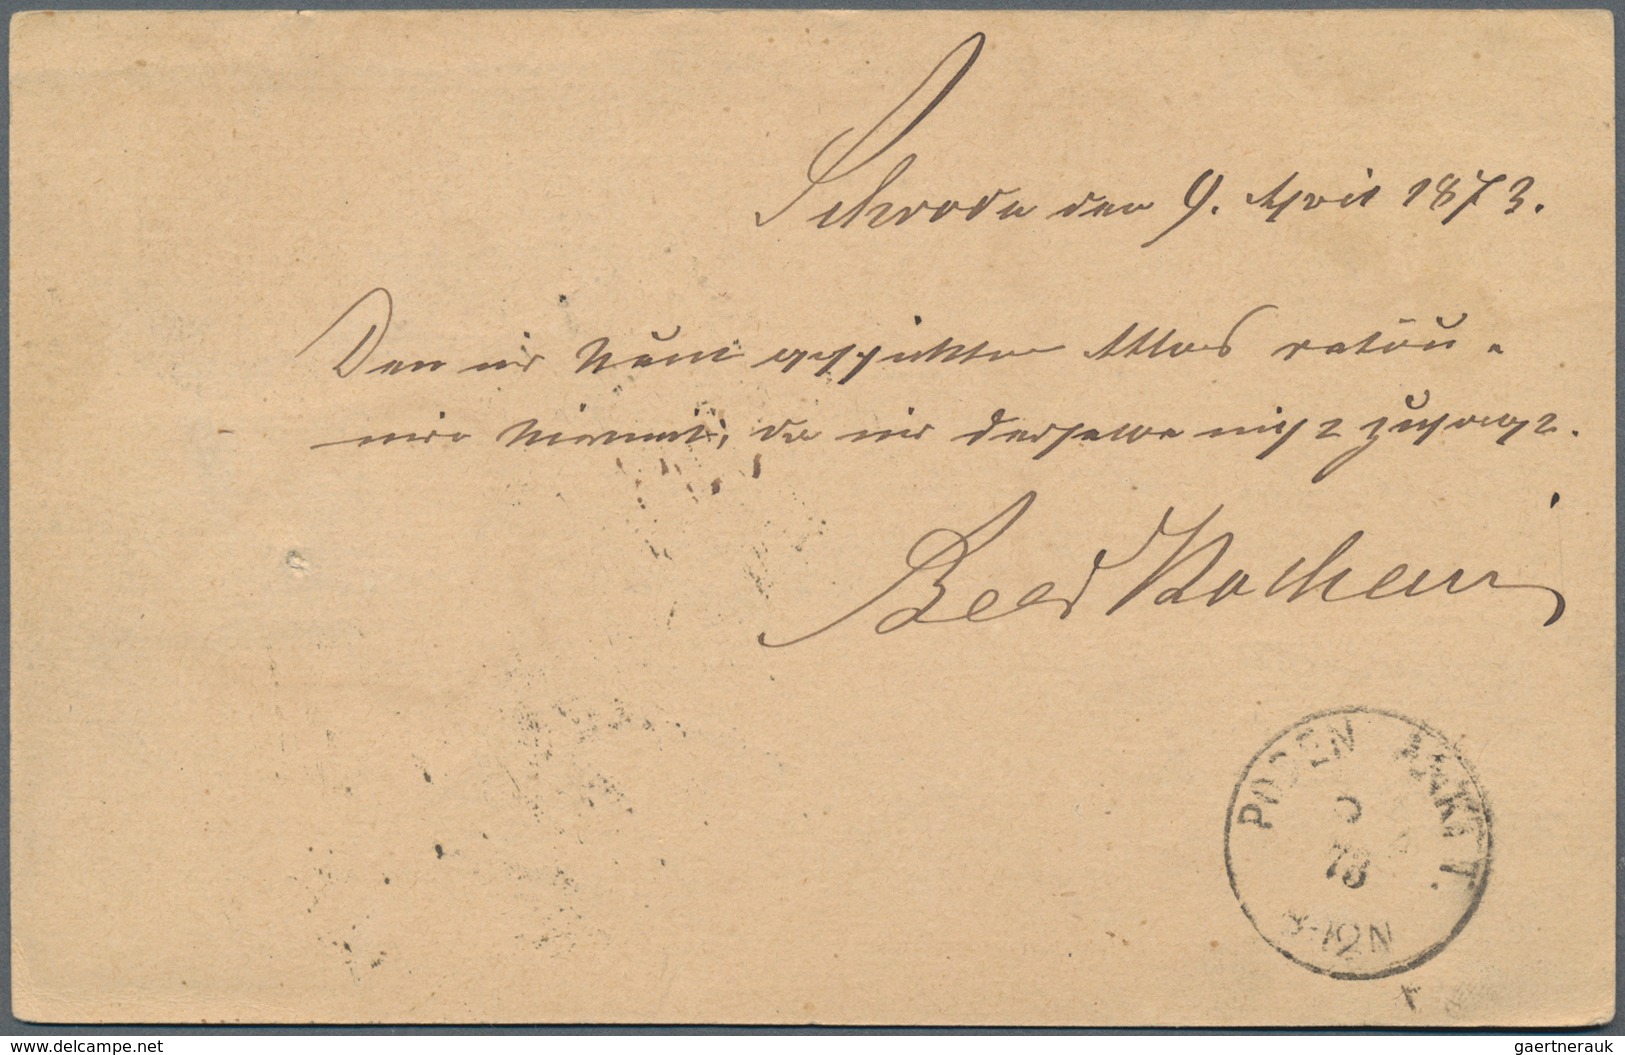 Schroda den 9. April 1873.
Den mir heut geschickten Atlas retour-
nire hiermit, da mir derselbe nicht zusagt.
POSEN
73
8-12N
www.delcampe.net
gaertnerauk